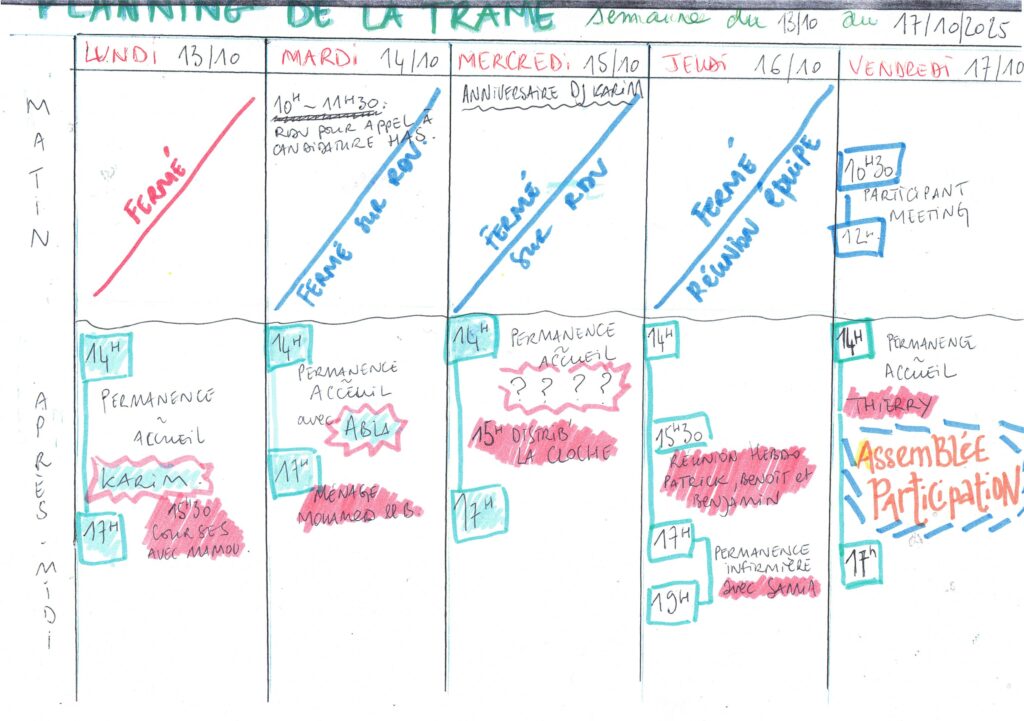 PLANNING DE LA TRAME semaine du 13/10 au 17/10/2025
LUNDI 13/10
MARDI 14/10
MERCREDI 15/10
JEUDI 16/10
VENDREDI 17/10
MATIN
FERMÉ
10H ~ 11H30:
RDV POUR APPEL À
CANDIDATURE HAS.
FERMÉ SUR RDV.
ANNIVERSAIRE DJ KARIM
FERMÉ
SUR RDV
FERMÉ
RÉUNION ÉQUIPE
10H30
PARTICIPANT
MEETING
12H
APRÈS-MIDI
14H
PERMANENCE
~
ACCUEIL
KARIM.
17H
15H30
COURSES
AVEC MAMOU.
14H
PERMANENCE
~
ACCEUIL
avec ABLA
17H
MÉNAGE
MOUAMED
14H
PERMANENCE
~
ACCUEIL
? ? ? ?
15H DISTRIB'
LA CLOCHE
17H
14H
15H30
RÉUNION HEBDO
PATRICK, BENOÎT et
BENJAMIN
17H
PERMANENCE
INFIRMIÈRE
avec SAMIA
19H
14H
PERMANENCE
~
ACCUEIL
THIERRY
ASSEMBLÉE
PARTICIPATION
17h